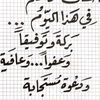 في هذا اليوم...
بركة وتوفيقاً
وعفواً... وعافية
ودعوة مستجابة